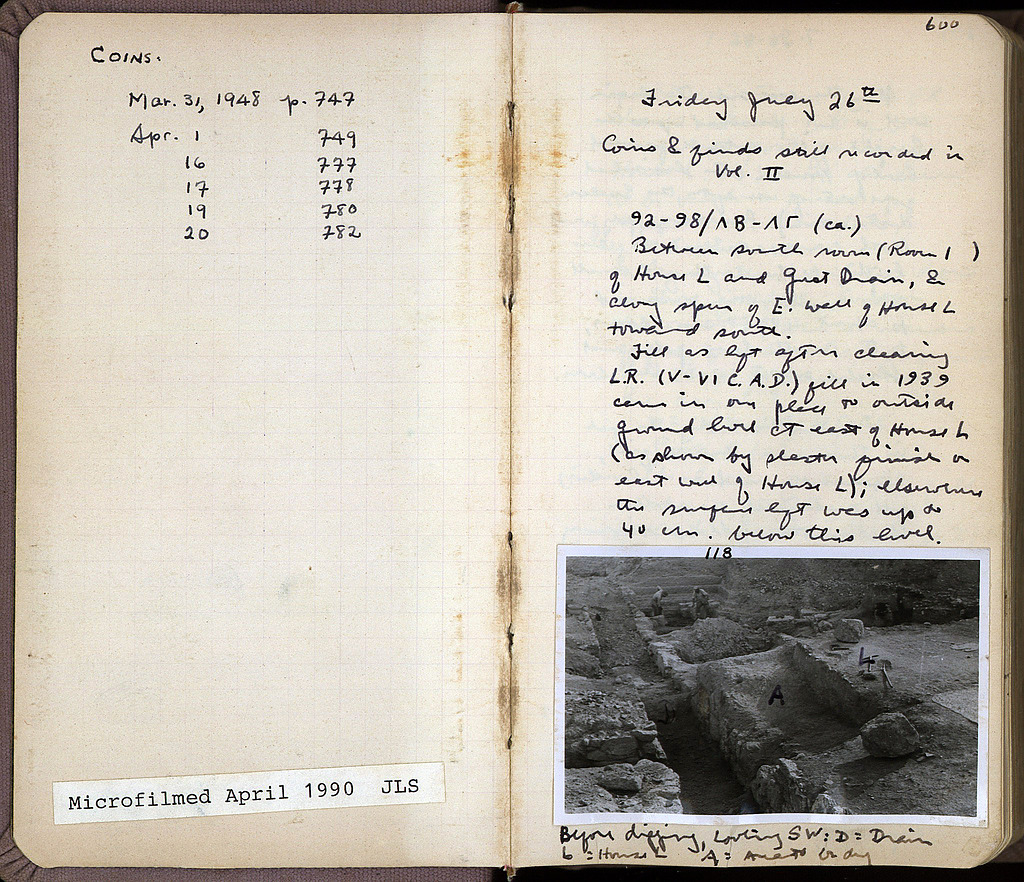 COINS.
Mar. 31, 1948 p. 747
Apr. 1 749
16 777
17 778
19 780
20 782
Microfilmed April 1990 JLS
600
Friday July 26th
Coins & finds still recorded in
Vol. II
92-98/ΛΒ-ΛΓ (ca.)
Between south room (Room 1 )
of House L and Great Drain, &
along spur of E. wall of House L
toward south.
Fill as left after clearing
L.R. (V-VI C. A.D.) fill in 1939
came in one place to outside
ground level at east of House L
(as shown by plaster finish on
east wall of House L); elsewhere
the surface left was up to
40 cm. below this level.
118
L
A
D
Before digging, looking SW: D = Drain
L = House L A = area to be dug